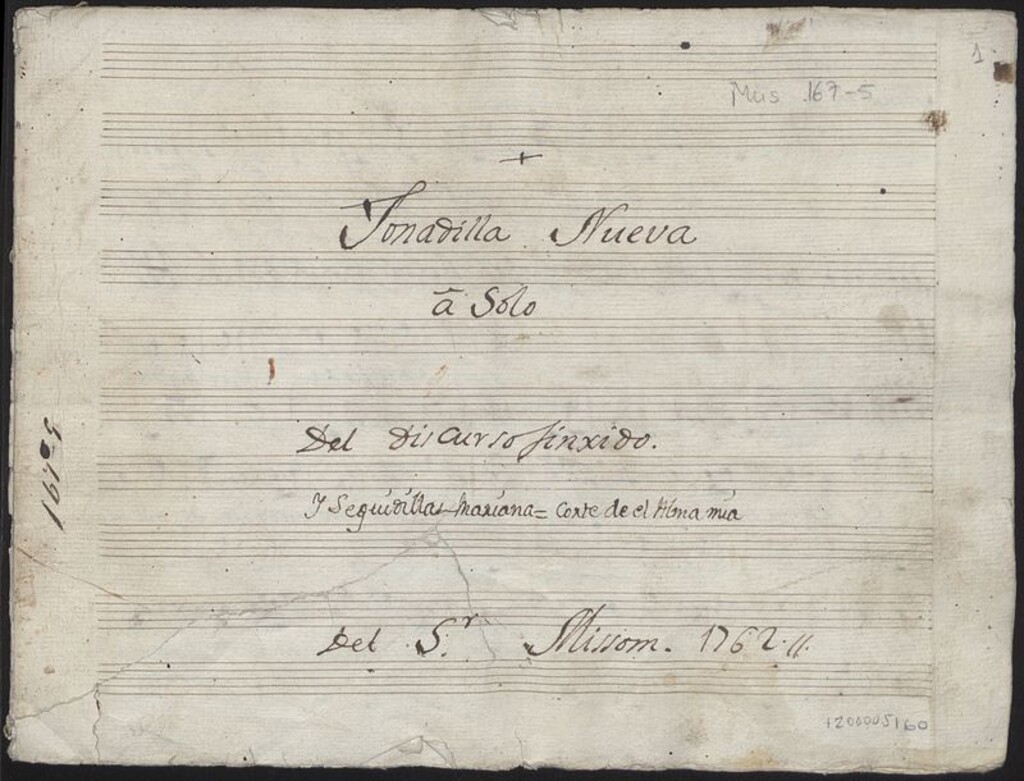 1
Mus 167-5
+
Tonadilla Nueva
ā Solo
Del discurso finxido.
Y Seguidillas Mariana = Corte de el Alma mia
Del Sr Misson. 1762.
167-5
1200005160